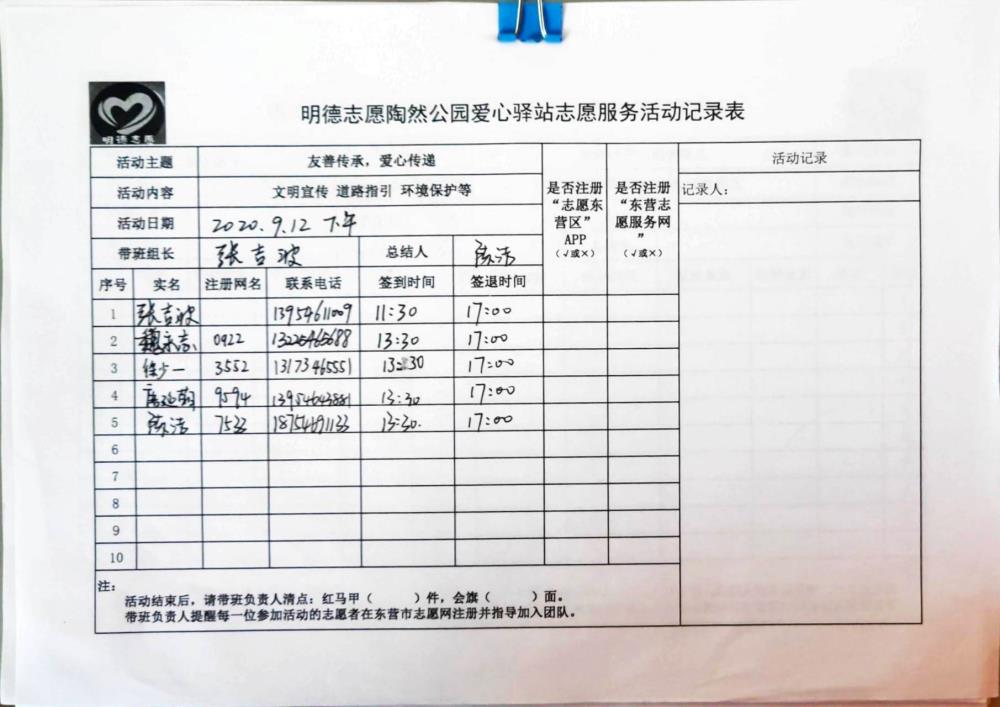 明德志愿
明德志愿陶然公园爱心驿站志愿服务活动记录表
活动主题 友善传承，爱心传递
活动内容 文明宣传 道路指引 环境保护等
活动日期 2020.9.12 下午
带班组长 张吉波 总结人
是否注册“志愿东营区”APP（√或×）
是否注册“东营志愿服务网”（√或×）
活动记录
记录人：
序号 实名 注册网名 联系电话 签到时间 签退时间
1 张吉波 13954611009 11:30 17:00
2 0922 13225465688 13:30 17:00
3 徐少一 3552 13173465551 13:30 17:00
4 9594 13954643881 13:30 17:00
5 7533 18754691133 13:30. 17:00
6
7
8
9
10
注：
活动结束后，请带班负责人清点：红马甲（ ）件，会旗（ ）面。
带班负责人提醒每一位参加活动的志愿者在东营市志愿网注册并指导加入团队。